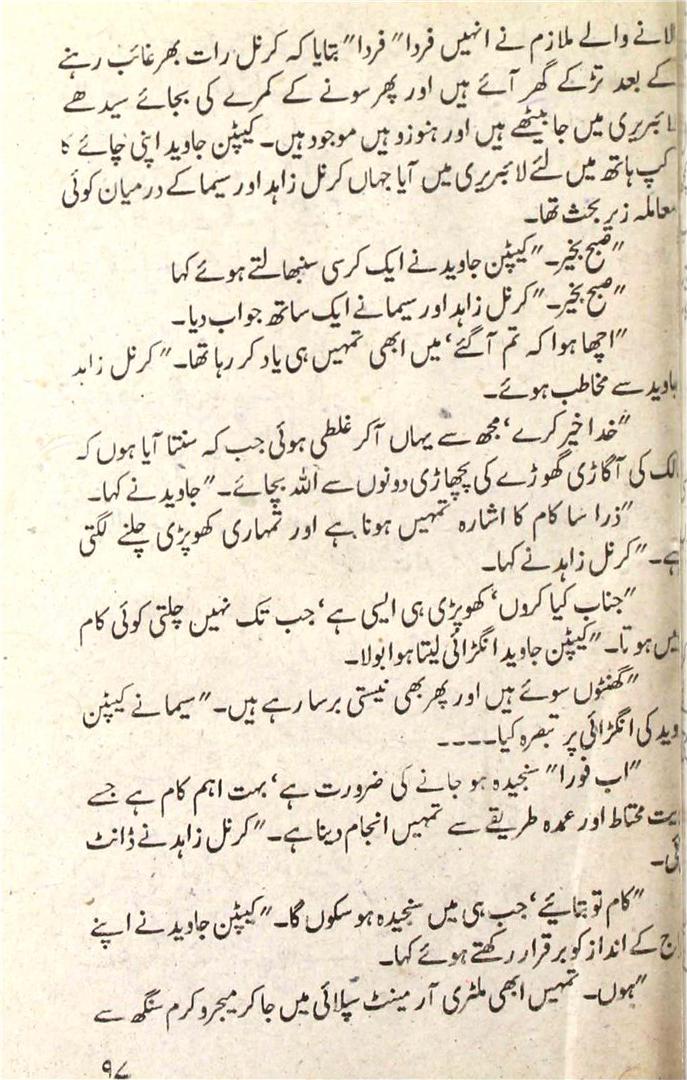 لانے والے ملازم نے انہیں فردا" فردا" بتایا کہ کرنل رات بھر غائب رہنے
کے بعد تڑکے گھر آئے ہیں اور پھر سونے کے کمرے کی بجائے سیدھے
لائبریری میں جا بیٹھے ہیں اور ہنوز وہیں موجود ہیں۔ کیپٹن جاوید اپنی چائے کا
کپ ہاتھ میں لئے لائبریری میں آیا جہاں کرنل زاہد اور سیما کے درمیان کوئی
معاملہ زیر بحث تھا۔
"صبح بخیر۔" کیپٹن جاوید نے ایک کرسی سنبھالتے ہوئے کہا
"صبح بخیر۔" کرنل زاہد اور سیما نے ایک ساتھ جواب دیا۔
"اچھا ہوا کہ تم آگئے، میں ابھی تمہیں ہی یاد کر رہا تھا۔" کرنل زاہد
جاوید سے مخاطب ہوئے۔
"خدا خیر کرے، مجھ سے یہاں آکر غلطی ہوئی جب کہ سنتا آیا ہوں کہ
لک کی آگاڑی گھوڑے کی پچھاڑی دونوں سے اللہ بچائے۔" جاوید نے کہا۔
"ذرا سا کام کا اشارہ تمہیں ہوتا ہے اور تمہاری کھوپڑی چلنے لگتی
ہے۔" کرنل زاہد نے کہا۔
"جناب کیا کروں، کھوپڑی ہی ایسی ہے، جب تک نہیں چلتی کوئی کام
ہیں ہوتا۔" کیپٹن جاوید انگڑائی لیتا ہوا بولا۔
"گھنٹوں سوئے ہیں اور پھر بھی نیستی برسا رہے ہیں۔" سیما نے کیپٹن
وید کی انگڑائی پر تبصرہ کیا۔۔۔۔
"اب فورا" سنجیدہ ہو جانے کی ضرورت ہے، بہت اہم کام ہے جسے
یت محتاط اور عمدہ طریقے سے تمہیں انجام دینا ہے۔" کرنل زاہد نے ڈانٹ
ئی۔
"کام تو بتائیے، جب ہی میں سنجیدہ ہو سکوں گا۔" کیپٹن جاوید نے اپنے
اج کے انداز کو برقرار رکھتے ہوئے کہا۔
"ہوں۔ تمہیں ابھی ملٹری آرمینٹ سپلائی میں جا کر میجر وکرم سنگھ سے
۹۷